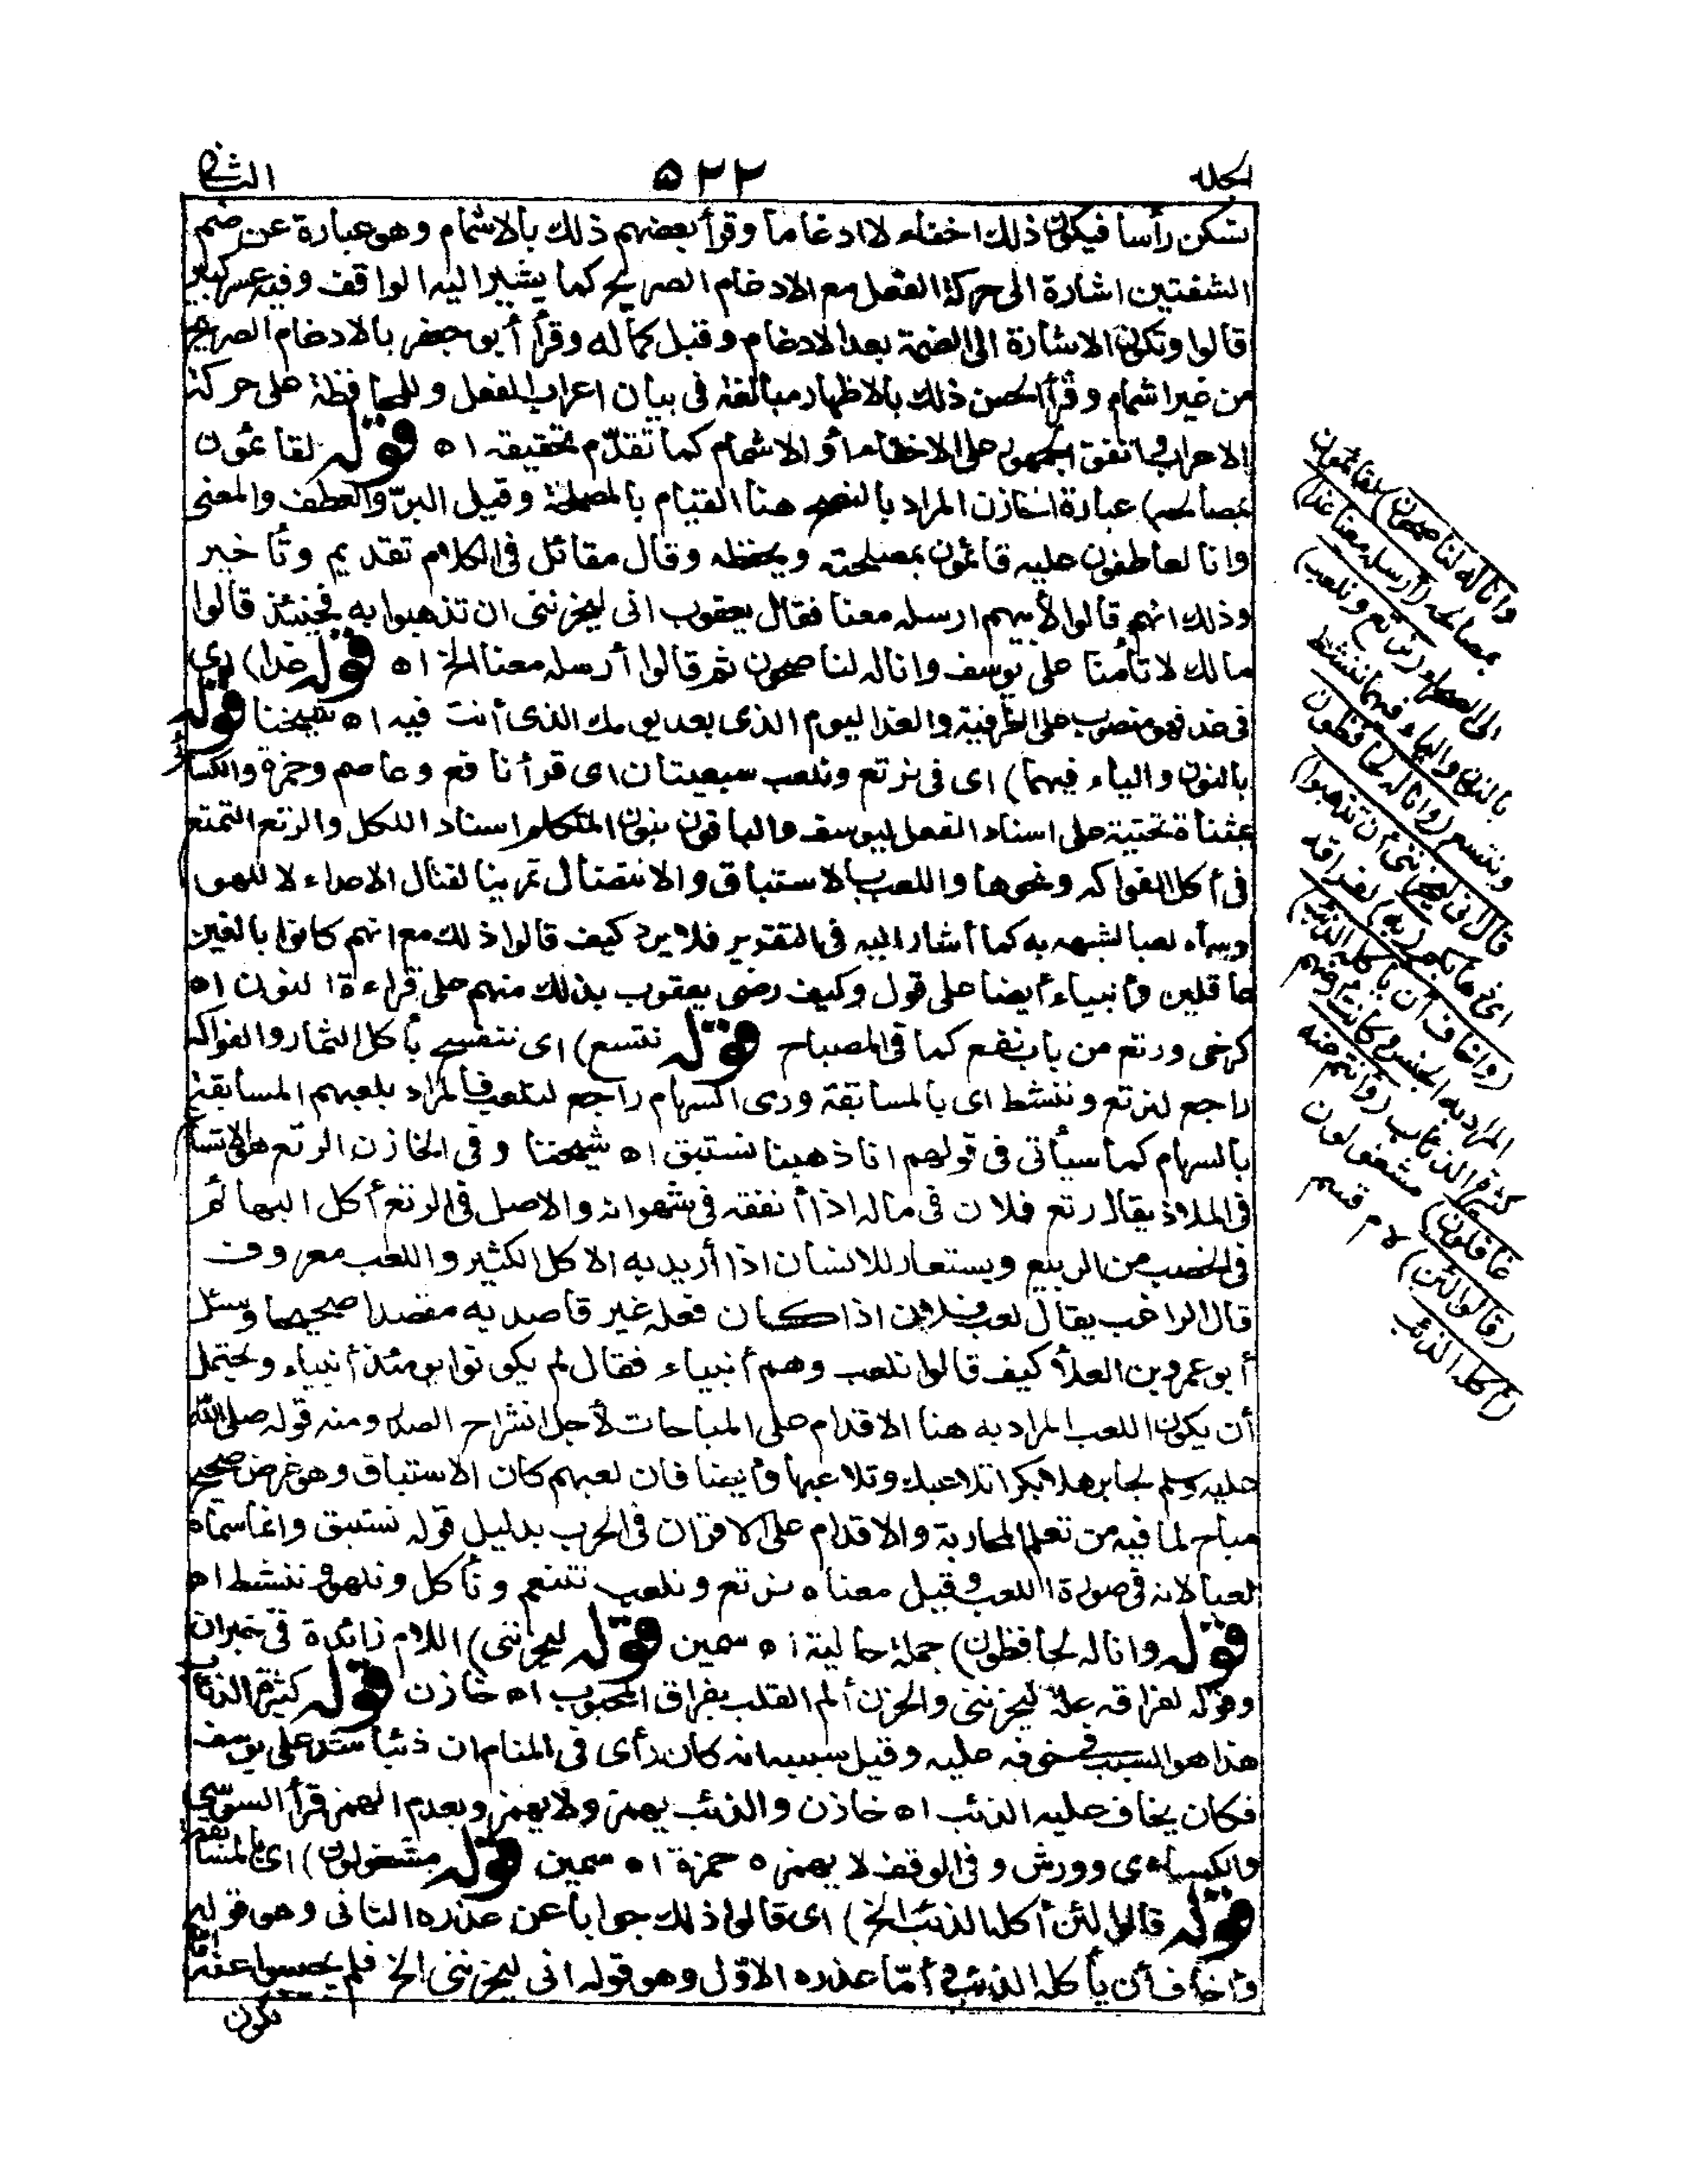 الجلد
٥٢٢
الثاني
تسكن رأسا فيكون ذلك اخفاء لا ادغاما وقرأ بعضهم ذلك بالاشمام وهو عبارة عن ضم
الشفتين اشارة الى حركة الفعل مع الادغام الصريح كما يشير اليه الواقف وفيه عسر كبير
قالوا وتكون الاشارة الى الضمة بعد الادغام وقبل كماله وقرأ أبو جعفر بالادغام الصريح
من غير اشمام وقرأ الحسن ذلك بالاظهار مبالغة فى بيان اعراب الفعل وللمحافظة على حركة
الاعراب واتفق الجمهور على الاخفاء أو الاشمام كما تقدّم تحقيقه اه قوله لقائمون
بمصالحه) عبارة الخازن المراد بالنصح هنا القيام بالمصلحة وقيل البرّ والعطف والمعنى
وانا لعاطفون عليه قائمون بمصلحته وبحفظه وقال مقاتل فى الكلام تقديم وتأخير
وذلك انهم قالوا لأبيهم ارسله معنا فقال يعقوب انى ليحزننى ان تذهبوا به فحينئذ قالوا
مالك لا تأمنا على يوسف وانا له لناصحون ثم قالوا أرسله معنا الخ اه قوله غدا) اى
فى غد فهو منصوب على الظرفية والغد اليوم الذى بعد يومك الذى أنت فيه اه شيخنا قوله
بالنون والياء فيهما) اى فى نرتع ونلعب سبعيتان اى قرأ نافع وعاصم وحمزة والكسائى
بمثناة تحتية على اسناد الفعل ليوسف والباقون بنون المتكلم اسناد اللكل والرتع التمتع
فى أكل الفواكه ونحوها واللعب بالاستباق والانتضال تمرينا لقتال الاعداء لا للهو
وسماه لعبا لشبهه به كما أشار اليه فى التقرير فلا يرد كيف قالوا ذلك مع انهم كانوا بالغين
عاقلين وأنبياء أيضا على قول وكيف رضى يعقوب بذلك منهم على قراءة النون اه
كرخى ورتع من باب نفع كما فى المصباح قوله نتسع) اى نتفسح بأكل الثمار والفواكه
راجع لنرتع وننشط اى بالمسابقة ورمى السهام راجع لنلعب فالمراد بلعبهم المسابقة
بالسهام كما سيأتى فى قولهم انا ذهبنا نستبق اه شيخنا وفى الخازن الرتع هو الاتساع
فى الملاذ يقال رتع فلان فى ماله اذا أنفقه فى شهواته والاصل فى الرتع أكل البهائم
فى الخصب من الربيع ويستعار للانسان اذا أريد به الاكل الكثير واللعب معروف
قال الراغب يقال لعب فلان اذا كان فعله غير قاصد به مقصدا صحيحا وسئل
أبو عمرو بن العلاء كيف قالوا نلعب وهم أنبياء فقال لم يكونوا يومئذ أنبياء ويحتمل
أن يكون اللعب المراد به هنا الاقدام على المباحات لأجل انشراح الصدر ومنه قوله صلى الله
عليه وسلم لجابر هلا بكرا تلاعبك وتلاعبها وأيضا فان لعبهم كان الاستباق وهو غرض صحيح
مباح لما فيه من تعلم المحاربة والاقدام على الاقران فى الحرب بدليل قوله نستبق وانما سماه
لعبا لانه فى صورة اللعب وقيل معناه نرتع ونلعب نتنعم ونأكل ونلهو وننشط اه
قوله وانا له لحافظون) جملة حالية اه سمين قوله ليحزننى) اللام زائدة فى خبر ان
وقوله لفراقه علة ليحزننى والحزن ألم القلب بفراق المحبوب اه خازن قوله كثيرة الذئاب
هذا هو السبب فى خوفه عليه وقيل سببه انه كان رأى فى المنام ان ذئبا شد على يوسف
فكان يخاف عليه الذئب اه خازن والذئب يهمز ولا يهمز وبعدم الهمز قرأ السوسى
والكسائى وورش وفى الوقف لا يهمزه حمزة اه سمين قوله مشغولون) اى بالمسابقة
قوله قالوا لئن أكله الذئب الخ) اى قالوا ذلك جوابا عن عذره الثانى وهو قوله
وأخاف أن يأكله الذئب وأمّا عذره الاوّل وهو قوله انى ليحزننى الخ فلم يجيبوا عنه
وانا له لناصحون) لقائمون
بمصالحه (أرسله معنا غدا)
الى الصحراء (نرتع ونلعب)
بالنون والياء فيهما ننشط
ونتسع (وانا له لحافظون
قال انى ليحزننى أن تذهبوا)
اى ذهابكم (به) لفراقه
(وأخاف أن يأكله الذئب)
المراد به الجنس وكانت أرضهم
كثيرة الذئاب (وأنتم عنه
غافلون) مشغولون
(قالوا لئن) لام قسم
(أكله الذئب